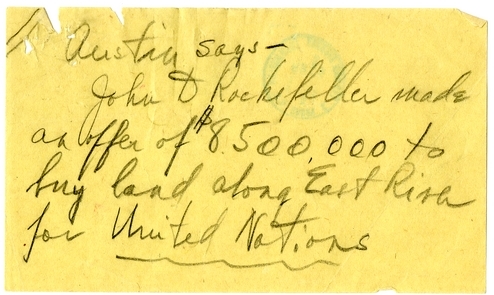 Austin says-
John D Rockefeller made
an offer of $8,500,000 to
buy land along East River
for United Nations